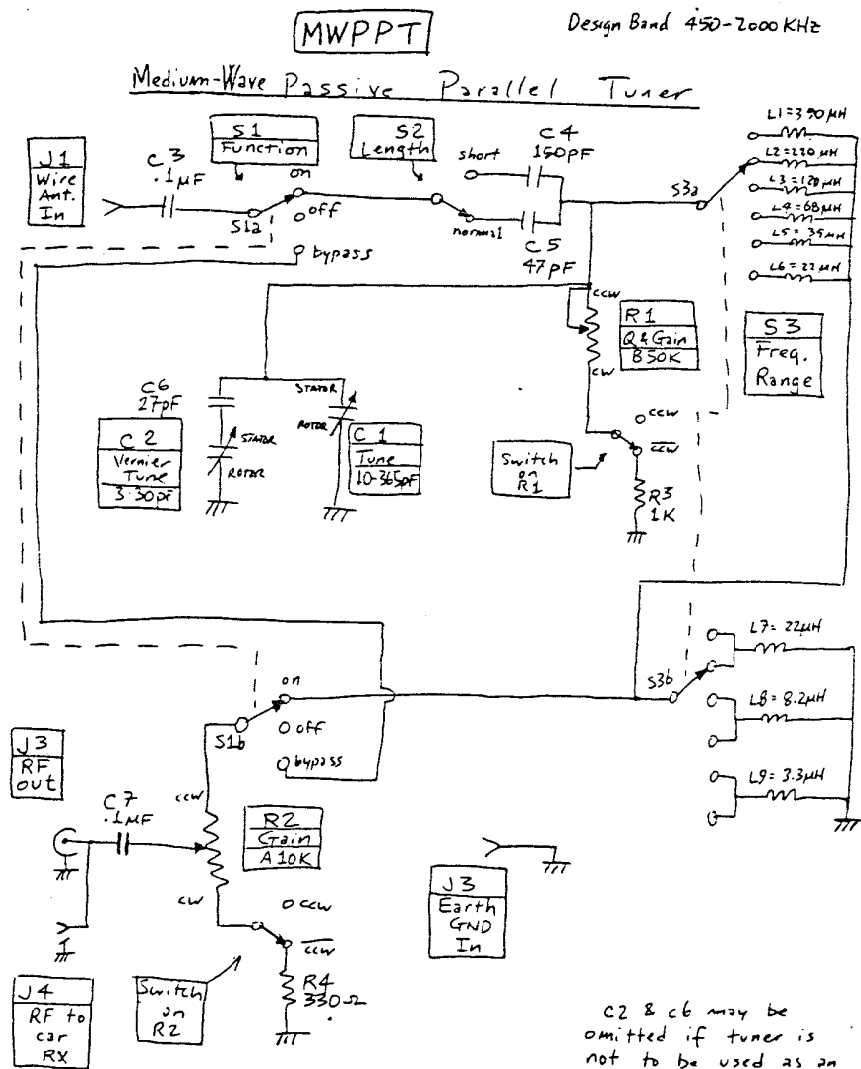 MWPPT
Design Band 450-2000 KHz
Medium-Wave Passive Parallel Tuner
J1
Wire
Ant.
In
C3
.1µF
S1
Function
on
S1a
off
bypass
S2
Length
short
normal
C4
150PF
C5
47pF
S3a
L1=390µH
L2=220µH
L3=120µH
L4=68µH
L5=35µH
L6=22µH
S3
Freq.
Range
ccw
cw
R1
Q & Gain
B50K
C6
27pF
C2
Vernier
Tune
3-30pF
STATOR
ROTOR
STATOR
ROTOR
C1
Tune
10-365pF
Switch
on
R1
ccw
ccw
R3
1K
on
S1b
off
bypass
S3b
L7=22µH
L8=8.2µH
L9=3.3µH
J3
RF
out
C7
.1µF
ccw
cw
R2
Gain
A10K
ccw
ccw
R4
330Ω
J3
Earth
GND
In
J4
RF to
car
RX
Switch
on
R2
C2 & C6 may be
omitted if tuner is
not to be used as an